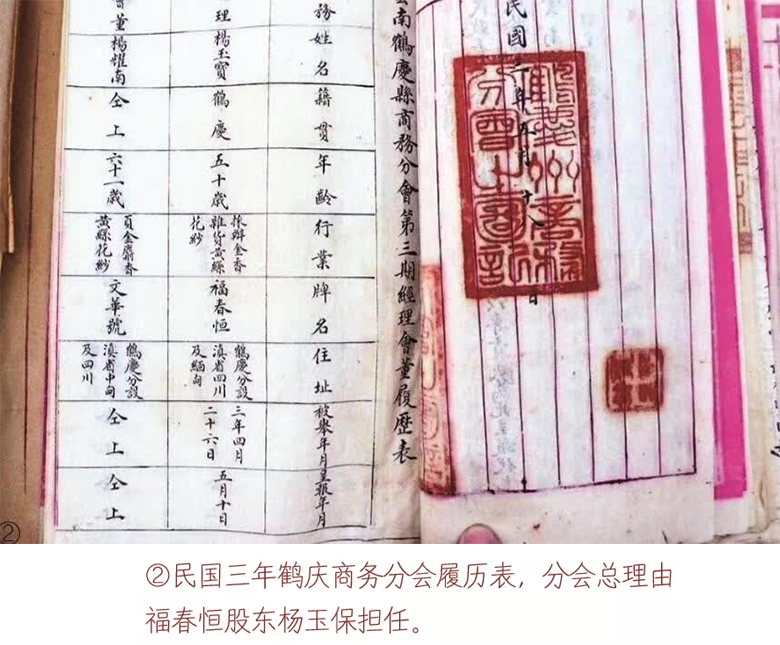 民國三年五月十八日
南鶴慶縣商務分會第三期經理會董履歷表
務
姓名
籍貫
年齡
行業
牌名
住址
被舉年月
呈報年月
理
楊玉寶
鶴慶
五十歲
採辦金香
雜貨黃絲
花紗
福春恒
鶴慶分設
滇省四川
及緬甸
三年四月
二十六日
五月十日
董
楊耀南
仝上
六十一歲
頁金麝香
黃絲花紗
文華號
鶴慶分設
滇省中甸
及四川
仝上
仝上
②
②民国三年鹤庆商务分会履历表，分会总理由
福春恒股东杨玉保担任。